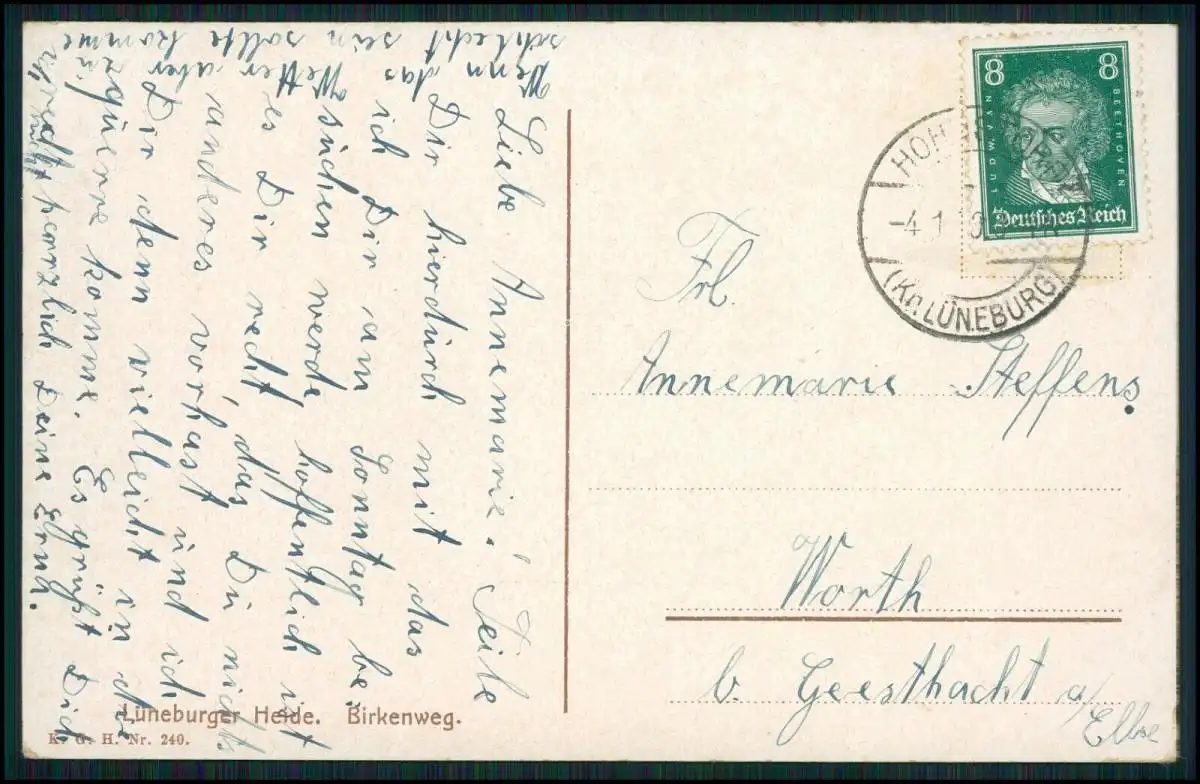 Liebe Annemarie! Teile
Dir hierdurch mit das
ich Dir am Sonntag be-
suchen werde, hoffentlich ist
es Dir recht, das Du nichts
anderes vorhast und ich
Dir denn vielleicht in die
quere komme. Es grüßt Dich
recht herzlich Deine Erna.
Wenn das Wetter aber zu
schlecht sein sollte komme
ich nicht.
Lüneburger Heide. Birkenweg.
K. G. H. Nr. 240.
8 8
LUDW. VAN BEETHOVEN
Deutsches Reich
-4.1
(Kr. LÜNEBURG)
Frl.
Annemarie Steffens
Worth
b. Geesthacht a/
Elbe